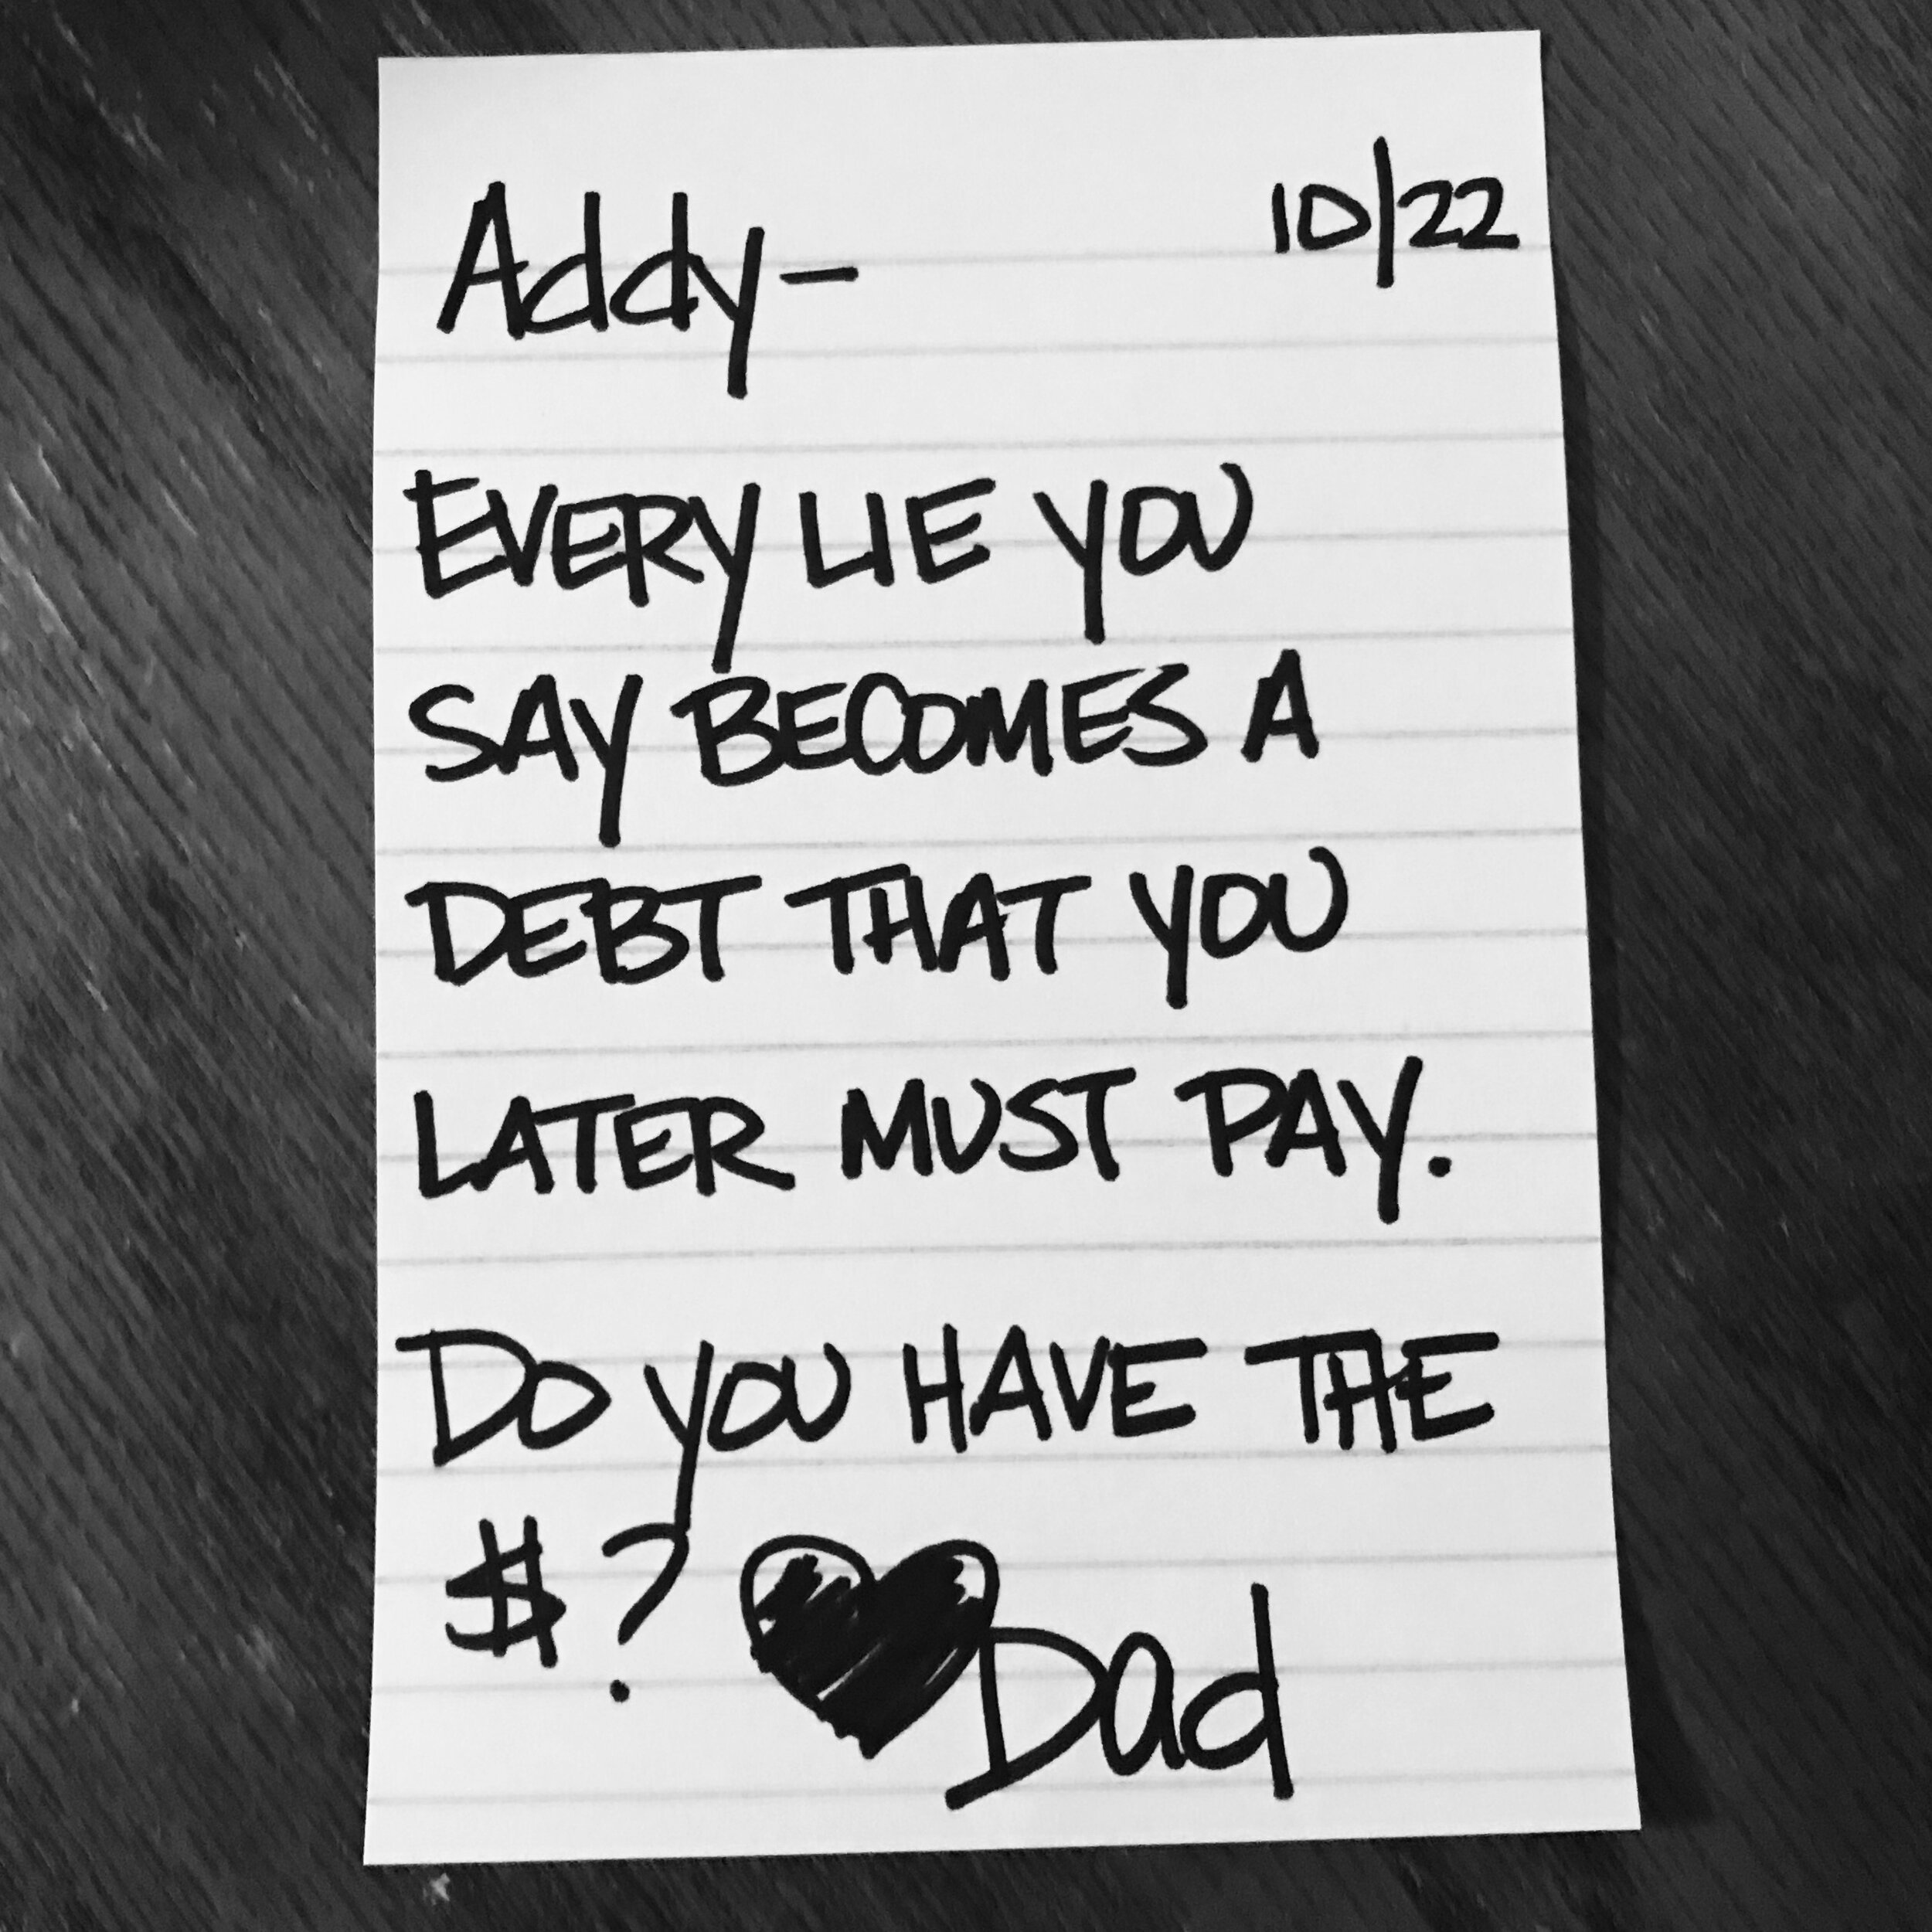 Addy- 10/22
EVERY LIE YOU
SAY BECOMES A
DEBT THAT YOU
LATER MUST PAY.
DO YOU HAVE THE
$? ♥ Dad